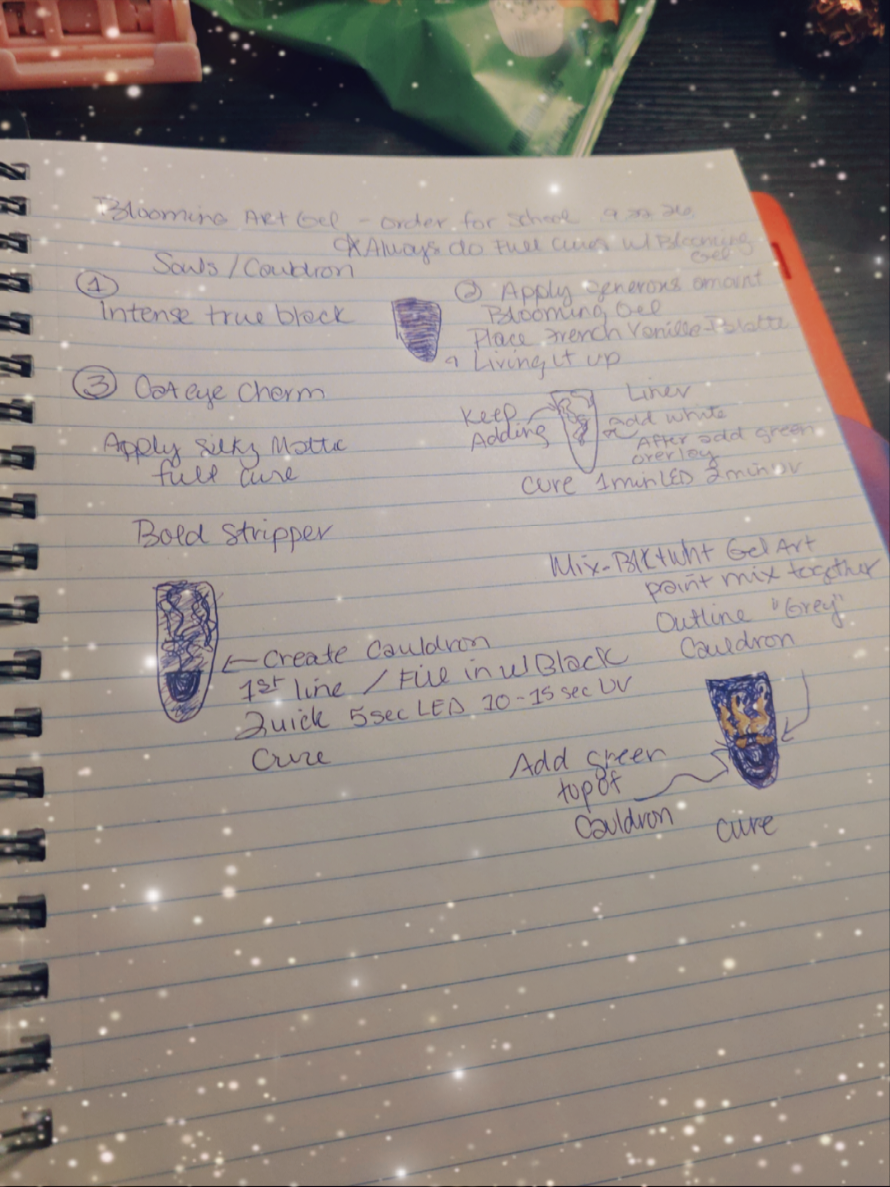 Blooming Art Gel - order for School 9.22.26
* Always do Full cures w/ Blooming
Gel
Souls / Cauldron
①
Intense true black
② Apply generous amount
Blooming Gel
Place French Vanilla-Palatte
Living it up
③ Cateye Charm
Keep
Adding
Liner
add white
After add green
overlay
Apply Silky Matte
full cure
Cure 1 min LED 2 min UV
Bold Stripper
Mix-Blk+wht Gel Art
paint mix together
Outline "Grey"
Cauldron
Create Cauldron
1st line / Fill in w/ Black
Quick 5 sec LED 10-15 sec UV
Cure
Add green
top of
Cauldron
Cure